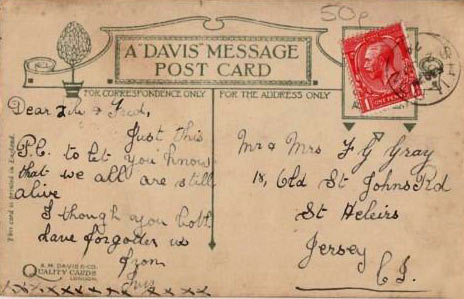 50p
A "DAVIS" MESSAGE
POST CARD
FOR CORRESPONDENCE ONLY
FOR THE ADDRESS ONLY
Dear & Fred,
Just this
P.C. to let you know
that we all are still
alive
I though you both
have forgotten us
from
x x x x x x x x x x x
Mr & Mrs F G Gray
18, Old St Johns Rd
St Heleirs
Jersey
C I.
This card is printed in England.
A.M. DAVIS & CO.
QUALITY CARDS
LONDON